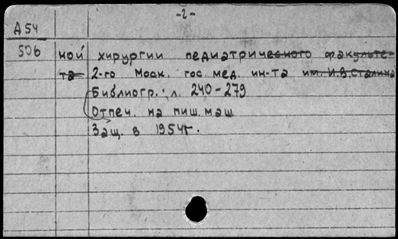 -2-
А54
506
ной хирургии педиатрического факульте-
та 2-го Моск. гос. мед. ин-та им. И.В. Сталина
Библиогр.: л. 240-279
Отпеч. на пиш. маш.
Защ. в 1954г.